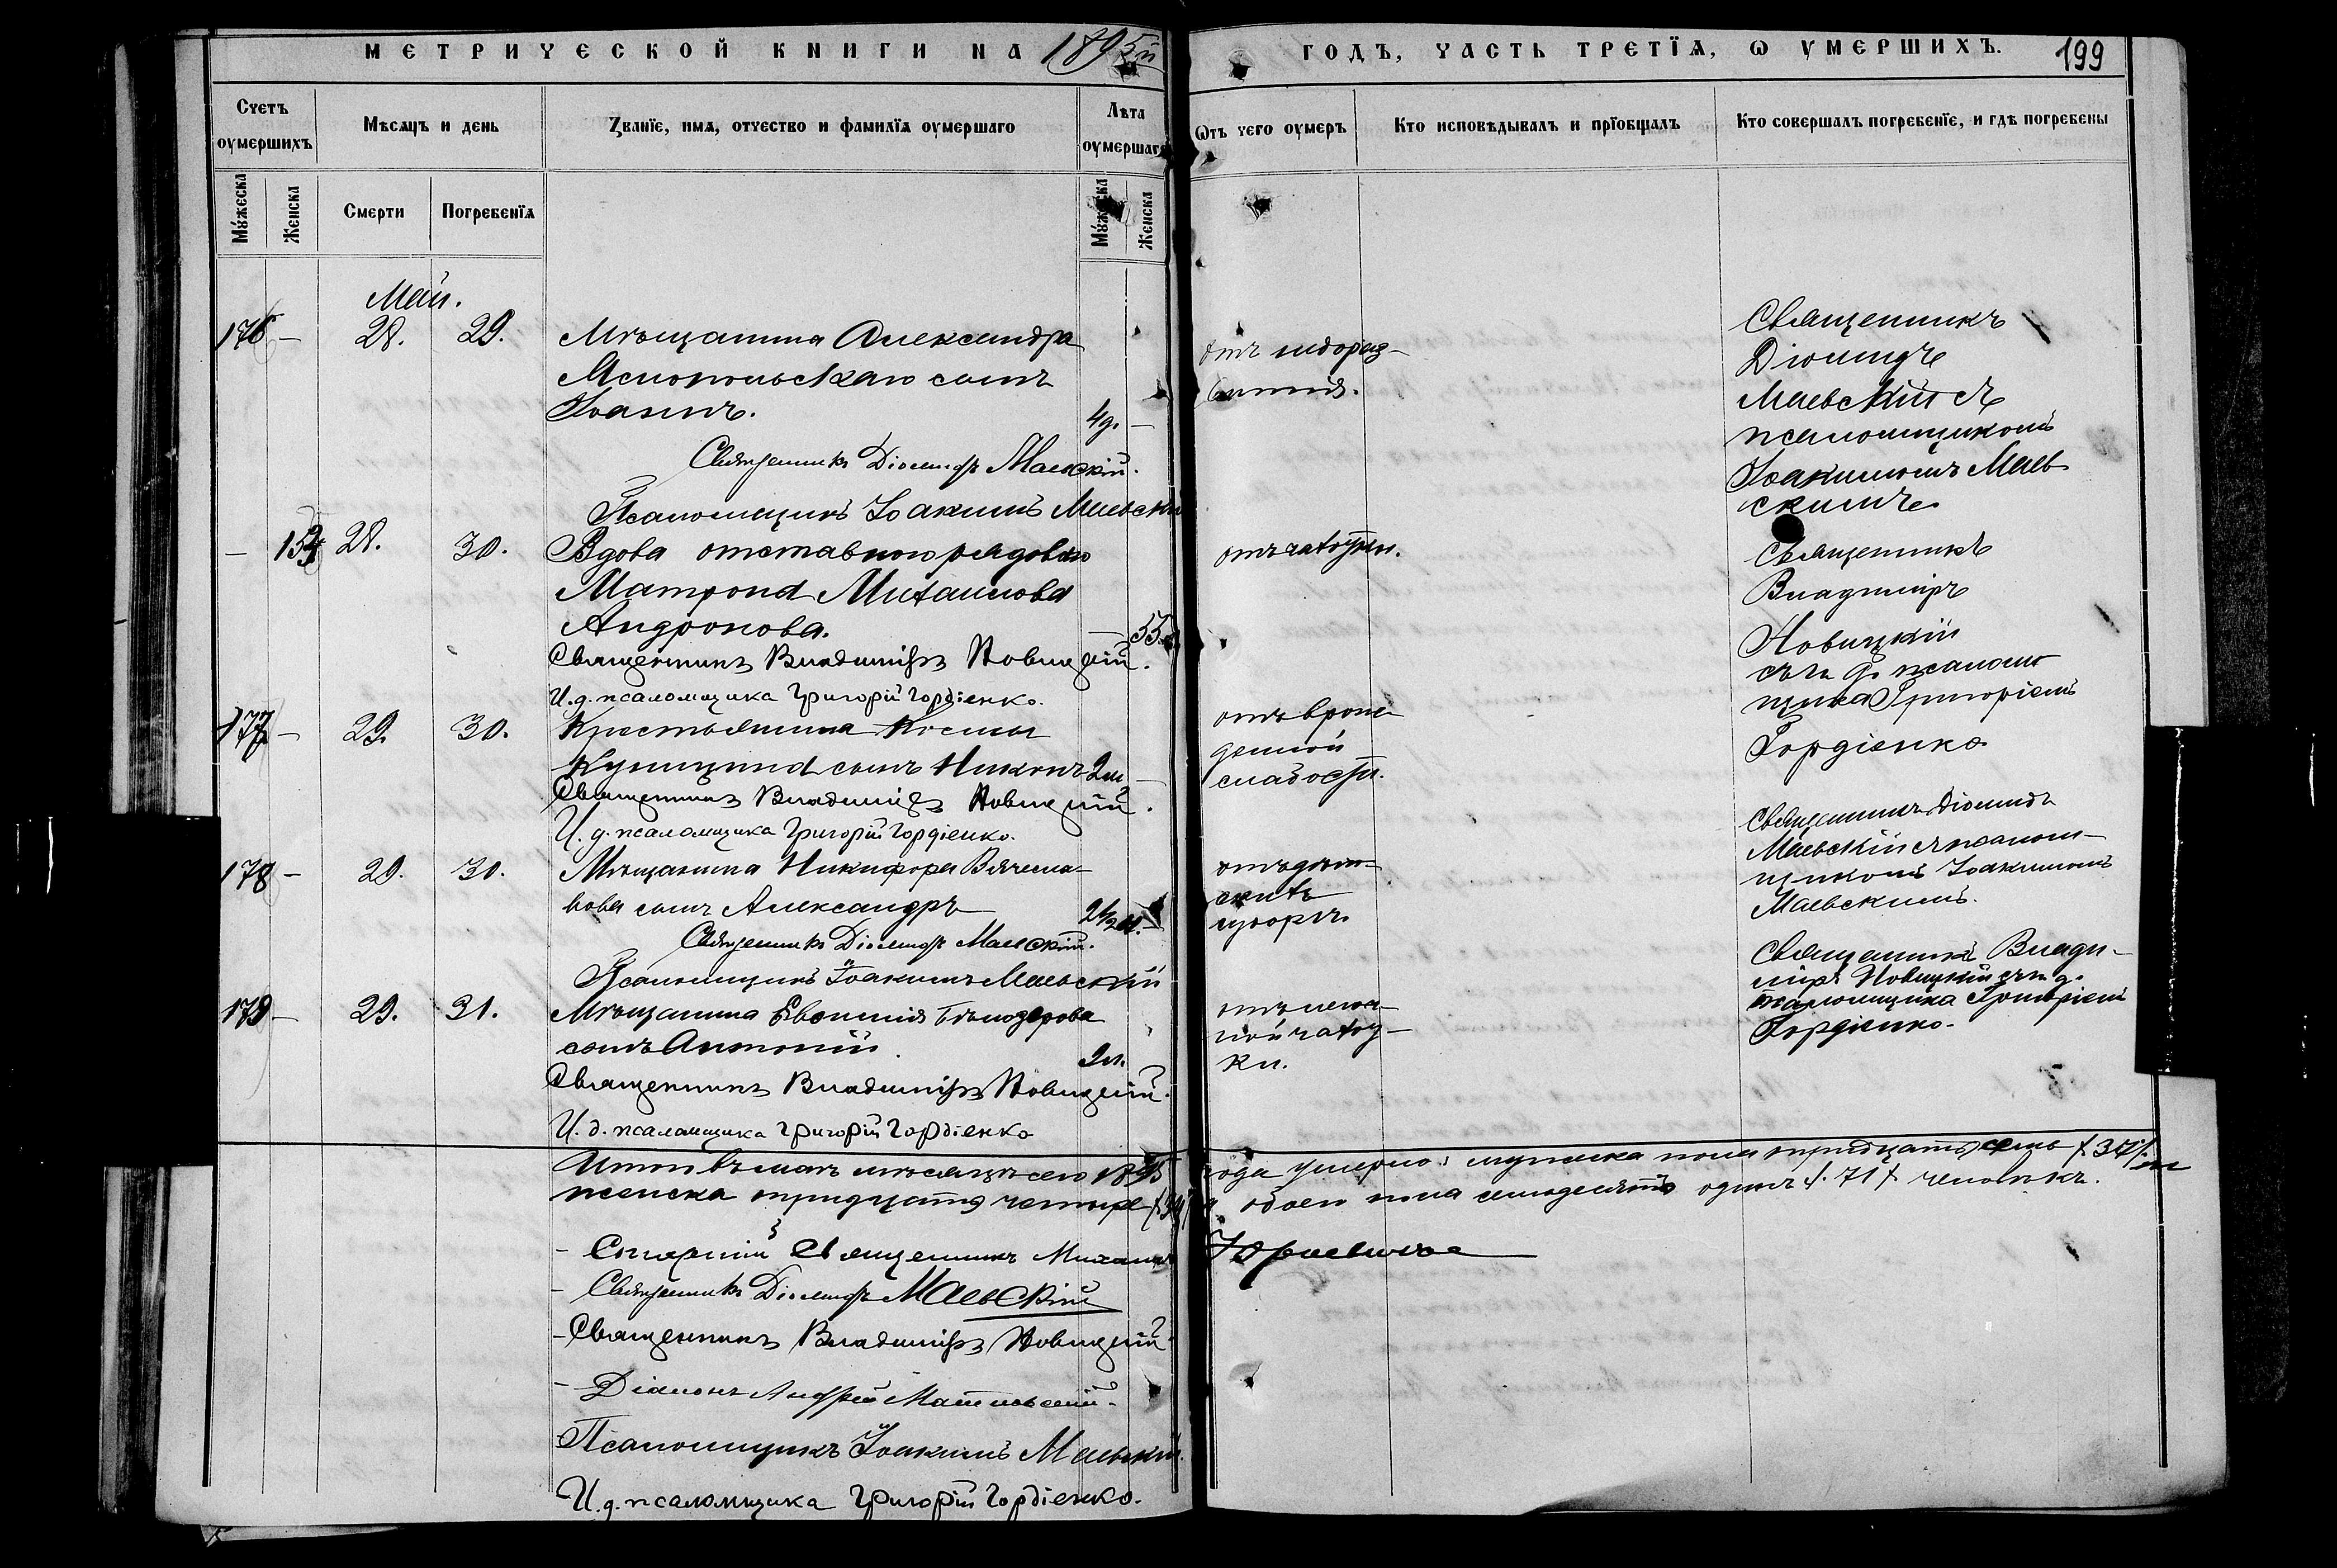 МЕТРИЧЕСКОЙ КНИГИ НА 1895й ГОДЪ, ЧАСТЬ ТРЕТЇѦ, Ѡ УМЕРШИХЪ. 199
Счетъ оумершихъ
Мѣсѧцъ и день
Званїе, имѧ, отчество и фамилїѧ оумершаго
Лѣта оумершаго
Ѿтъ чего оумеръ
Кто исповѣдывалъ и прїобщалъ
Кто совершалъ погребенїе, и гдѣ погребены
Мужеска
Женска
Смерти
Погребенїѧ
Мужеска
Женска
Май.
176 — 28. 29.
Мѣщанина Александра
сынъ
Іоаннъ.
4д. —
Священникъ Діомидъ Маевскій.
Псаломщикъ Іоакимъ Маевскій
Священникъ
Діомидъ
Маевскій съ
псаломщикомъ
Іоакимомъ Маев
скимъ
— 28. 30.
Вдова отставного рядового
Матрона Михаилова
Андронова.
— 55
Священникъ Владиміръ Новицкій.
И. д. псаломщика Григорій Гордіенко.
отъ чахотки.
Священникъ
Владиміръ
Новицкій
съ и. д. псалом
щика Григоріемъ
Гордіенко
177 — 29. 30.
Крестьянина Космы
сынъ Никонъ 2м —
Священникъ Владиміръ Новицкій.
И. д. псаломщика Григорій Гордіенко.
отъ врож
денной
слабости.
Священникъ Діомидъ
Маевскій съ псалом-
щикомъ Іоакимомъ
Маевскимъ.
178 — 29. 30.
Мѣщанина Никифора Вячесла-
вова сынъ Александръ
2½ м. —
Священникъ Діомидъ Маевскій.
Псаломщикъ Іоакимъ Маевскій
Священникъ Влади-
міръ Новицкій съ и. д.
псаломщика Григоріемъ
Гордіенко.
179 — 29. 31.
Мѣщанина Евѳимія Бѣлодѣрова
сынъ Антоній.
Священникъ Владиміръ Новицкій.
И. д. псаломщика Григорій Гордіенко
отъ легоч
ной чахот-
ки.
Итого въ маѣ мѣсяцѣ сего 1895 года умерло: мужеска пола тридцать семь /37/
женска тридцать четыре /34/ а обоего пола семьдесятъ одинъ /71/ человѣкъ.
— Старшій Священникъ Михаилъ
— Священникъ Діомидъ Маевскій
— Священникъ Владиміръ Новицкій
— Діаконъ Андрей
Псаломщикъ Іоакимъ Маевскій.
И. д. псаломщика Григорій Гордіенко.